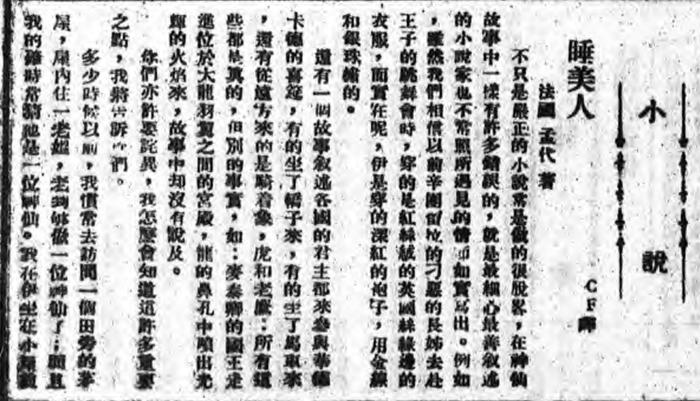 小說
睡美人
CF譯
法國 孟代 著
不只是嚴正的小說常是做的很脫客,在神仙
故事中一樣有許多錯誤的,就是最細心最善敘述
的小說家也不常照所遇見的情節如實寫出。例如
,雖然我們相信以前辛團位的刁惡的長姊去赴
王子的跳舞會時,穿的是紅絲絨的英國絲緣邊的
衣服,而實在呢,伊是穿的深紅的袍子,用金線
和銀珠繡的。
還有一個故事敘述各國的君主都來參與華德
卡德的喜筵,有的坐了轎子來,有的坐了馬車來
,還有從遠方來的是騎着象,虎和老鷹:所有這
些都是真的,但別的事實,如:麥泰鄉的國王走
進位於大龍羽翼之間的宮殿,龍的鼻孔中噴出光
輝的火焰來,故事中却沒有說及。
你們亦許要詫異,我怎麼會知道這許多重要
之點,我將告訴你們。
多少時候以前,我慣常去訪問一個田旁的茅
屋,屋內住一老媼,老到够做一位神仙了;而且
我的確時常猜她是一位神仙。我在伊坐在小